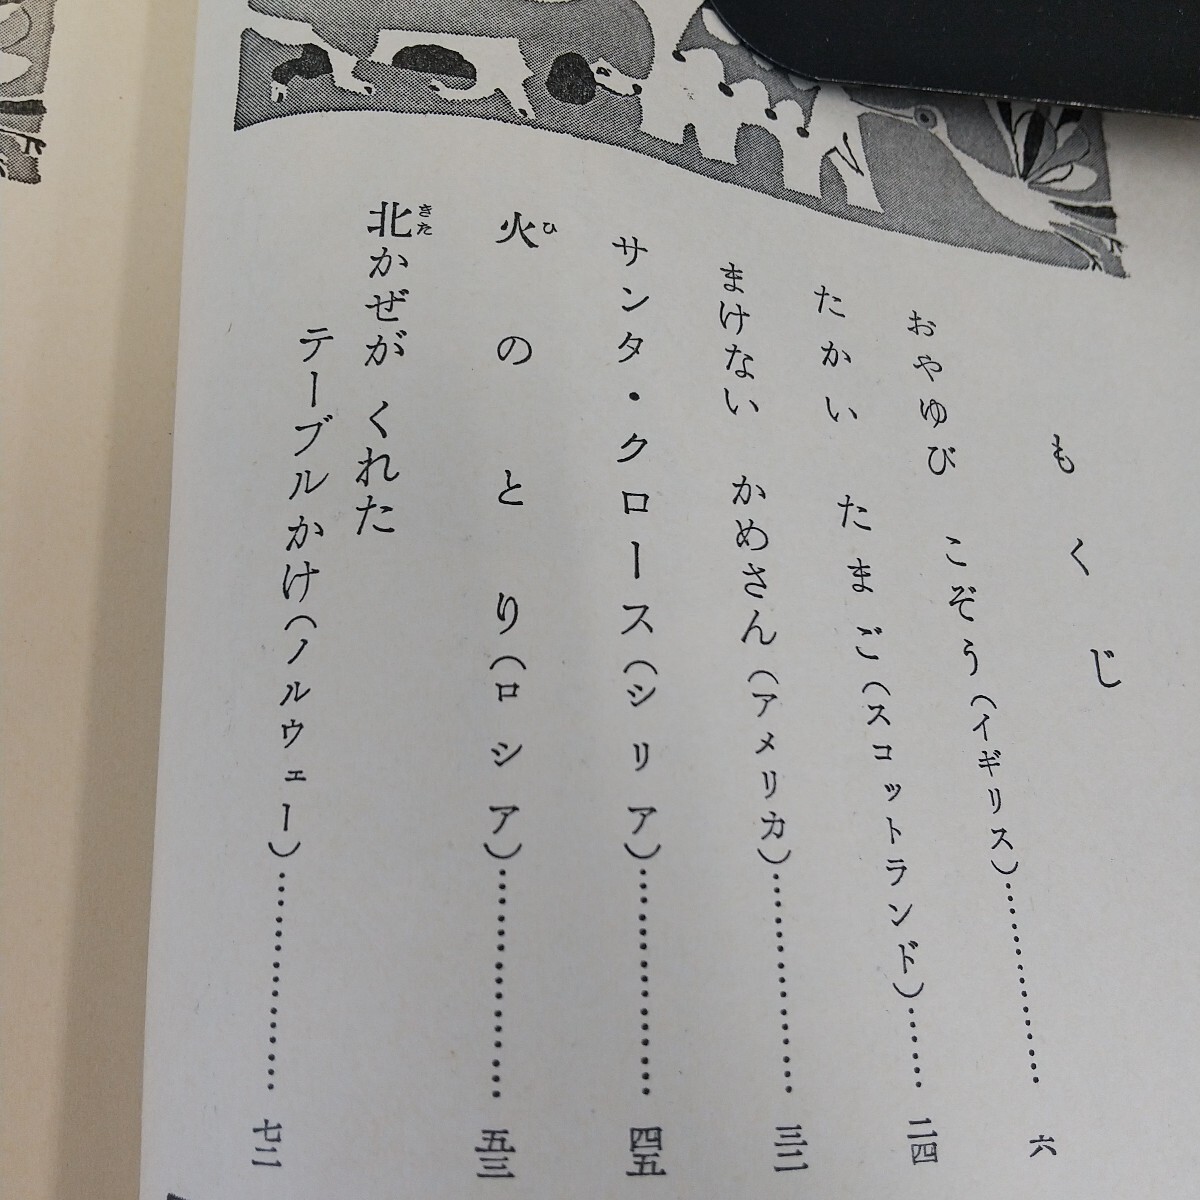 もくじ
おやゆび こぞう（イギリス）…………… 六
たかい たまご（スコットランド）…… 二四
まけない かめさん（アメリカ）…………… 三二
サンタ・クロース（シリア）…………… 四五
火のとり（ロシア）…………… 五三
ひ
北かぜが くれた
きた
テーブルかけ（ノルウェー）…………… 七二